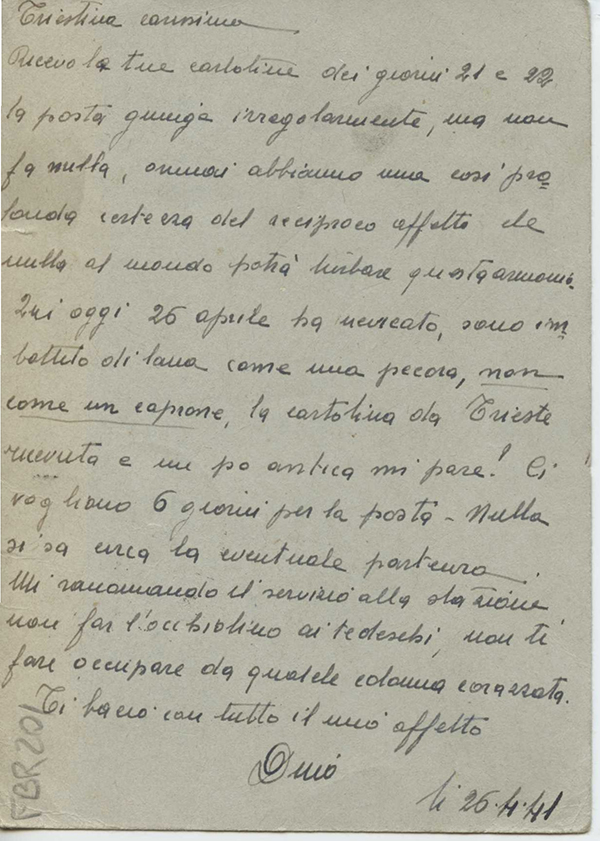 Triestina carissima
Ricevo le tue cartoline dei giorni 21 e 22
la posta giunge irregolarmente, ma non
fa nulla, ormai abbiamo una così pro=
fonda certezza del reciproco affetto che
nulla al mondo potrà turbare questa armonia.
Qui oggi 26 aprile ha nevicato, sono im=
bottito di lana come una pecora, non
come un caprone, la cartolina da Trieste
ricevuta è un po antica mi pare! Ci
vogliono 6 giorni per la posta - Nulla
si sa circa la eventuale partenza.
Mi raccomando il servizio alla stazione
non far l'occhiolino ai tedeschi, non ti
fare occupare da qualche colonna corazzata.
Ti bacio con tutto il mio affetto
li 26.4.41
FBR201